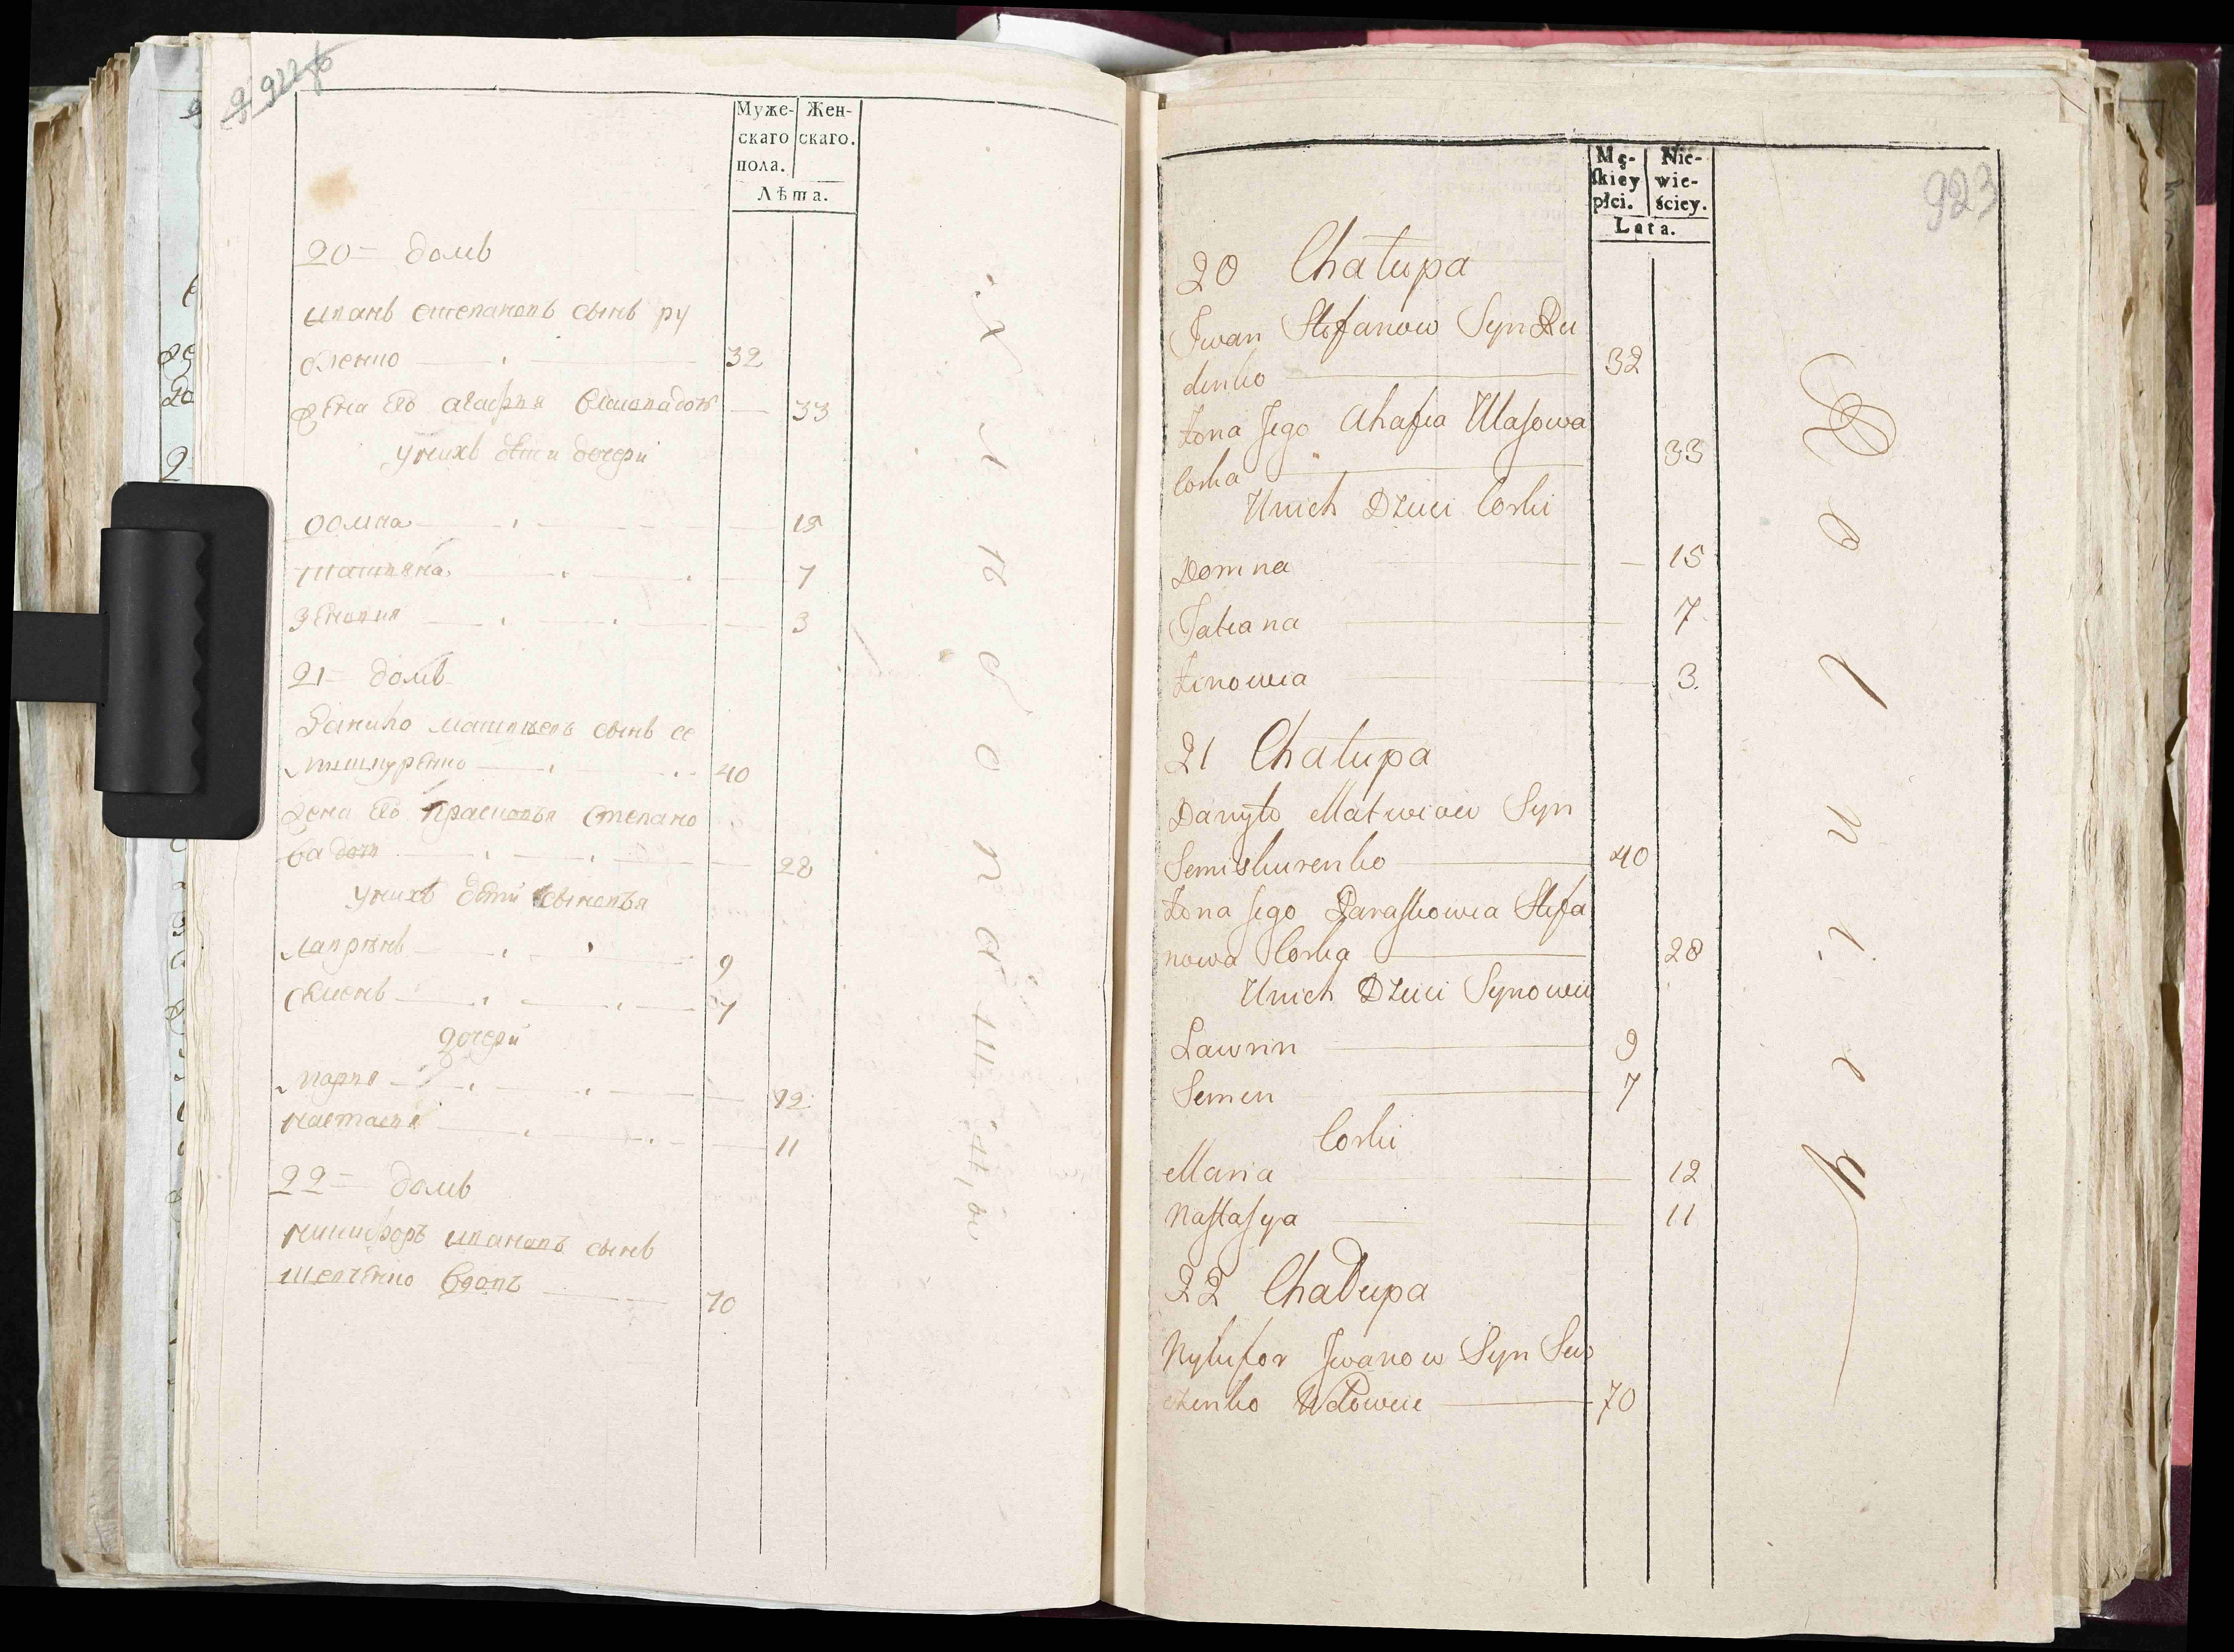 922 об
Муже- Жен-
скаго скаго.
пола.
Лѣта.
20 = домъ
иванъ степановъ сынъ ру
бленко 32
жена его агафия 33
у нихъ дети дочери
домна 15
татияна 7
зеновия 3
21 = домъ
данило матвѣевъ сынъ се
мишуренко 40
жена его прасковья степано
ва дочь 28
у нихъ дети сыновья
лаврѣнъ 9
семенъ 7
дочери
мария 12
настасия 11
22 = домъ
никифоръ ивановъ сынъ
шевченко вдовъ 70
923
Mę- Nie-
skiey wie-
płci. ściey.
Lata.
20 Chałupa
Jwan Stefanow Syn Ru
denko 32
Żona Jego Ahafia Własowa
Corka 33
Unich Dzieci Corki
Domna 15
Tatiana 7
Zinowia 3.
21 Chałupa
Danyło Matwiow Syn
Semiskurenko 40
Żona Jego Paraskowia Stefa
nowa Corka 28
Unich Dzieci Synowie
Lawrin 9
Semen 7
Corki
Maria 12
Nastasya 11
22 Chałupa
Nykifor Jwanow Syn Sew
czenko Wdowiec 70